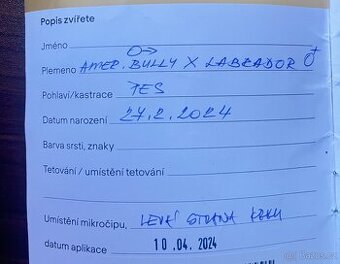 Popis zvířete
Jméno
Plemeno AMER. BULLY X LABRADOR
Pohlaví/kastrace PES
Datum narození 27.2.2024
Barva srsti, znaky
Tetování / umístění tetování
Umístění mikročipu, LEVÁ STRANA KRKU
datum aplikace 10.04.2024